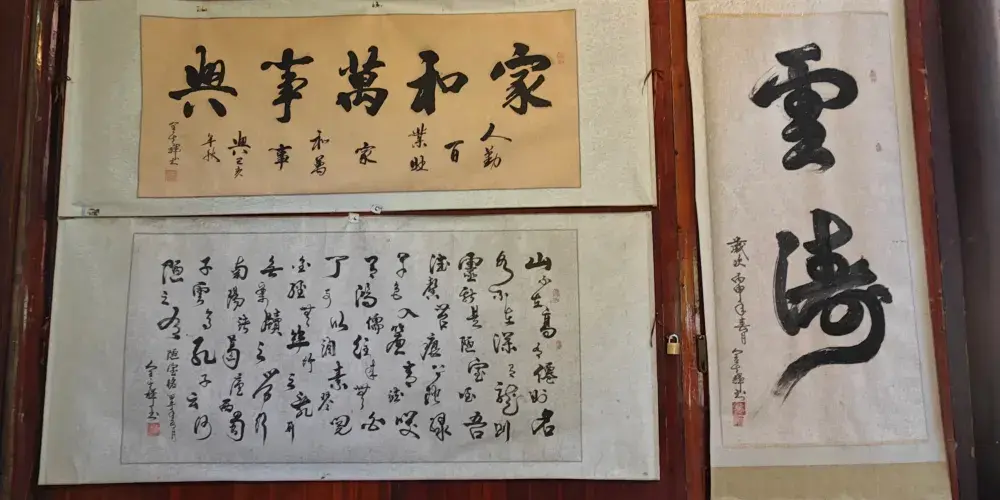 家和萬事興
人勤
百
業旺
家
和萬
事
興己亥
年秋
山不在高有僊則名
水不在深有龍則
靈斯是陋室唯吾
德馨苔痕上階綠
草色入簾青談笑
有鴻儒往來無白
丁可以調素琴閱
金經無絲竹之亂耳
無案牘之勞形
南陽諸葛廬西蜀
子雲亭孔子云何
陋之有 陋室銘
雲濤
歲次丙申年春月